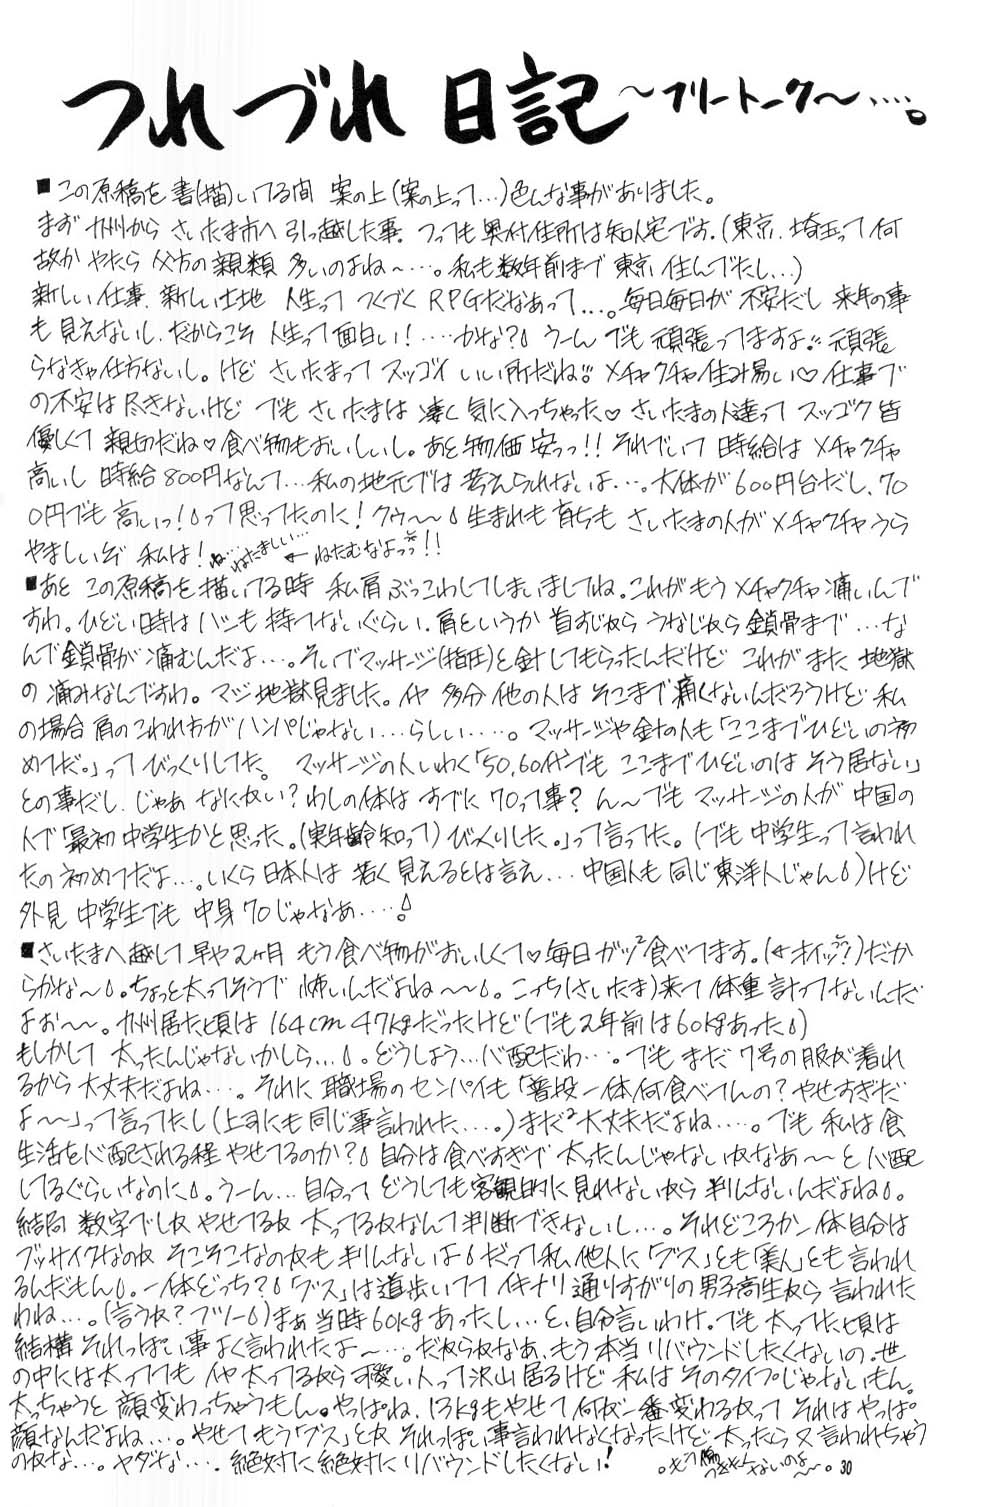 つれづれ日記 〜フリートーク〜‥‥。
■この原稿を書(描)いてる間 案の上(案の上って…)色んな事がありました。
まず 九州から さいたま市へ 引っ越した事。つっても 奥付住所は知人宅です。(東京、埼玉って何
故か やたら 父方の親類 多いのよね〜…。私も数年前まで 東京 住んでたし…)
新しい仕事、新しい土地 人生って つくづく RPGだなあって…。毎日毎日が 不安だし 来年の事
も 見えないし、だからこそ 人生って面白い!‥‥かな? うーん でも 頑張ってますよ!! 頑張
らなきゃ仕方ないし。けど さいたまって スッゴイ いい所だね!! メチャクチャ住み易い♡ 仕事で
の不安は 尽きないけど でも さいたまは 凄く 気に入っちゃった♡ さいたまの人達って スッゴク 皆
優しくて 親切だね♡ 食べ物もおいしいし。あと 物価 安っっ!! それでいて 時給は メチャクチャ
高いし 時給800円なんて…私の地元では 考えられないよ…。大体が 600円台だし、70
0円でも 高いっ!って思ってたのに! クゥ〜〜 生まれも 育ちも さいたまの人が メチャクチャ うら
やましいぞ 私は! ね…ねたましい… ←ねたむなよっっ!!
■あと この原稿を 描いてる時 私 肩 ぶっこわしてしまいましてね。これがもう メチャクチャ 痛いんで
すわ。ひどい時は ハシも 持てないぐらい、肩というか 首すじから うなじから 鎖骨まで…な
んで鎖骨が 痛むんだよ…。そいでマッサージ(指圧)と針してもらったんだけど これがまた 地獄
の 痛みなんですわ。マジ 地獄見ました。イヤ 多分 他の人は そこまで痛くないんだろうけど 私
の場合 肩のこわれ方が ハンパじゃない…らしい‥‥。マッサージや針の人も「ここまでひどいの初
めてだ。」って びっくりしてた。 マッサージの人いわく「50、60代でも ここまでひどいのは そう居ない」
との事だし、じゃあ なにかい? わしの体は すでに 70って事? ん〜でも マッサージの人が 中国の
人で「最初 中学生かと思った。(実年齢知って)びっくりした。」って言ってた。(でも 中学生って言われ
たの初めてだよ…。いくら 日本人は 若く見えるとは言え… 中国人も 同じ 東洋人じゃん)けど
外見 中学生でも 中身70じゃなあ‥‥!
■さいたまへ越して 早や2ヶ月 もう 食べ物がおいしくて♡毎日 ガツ²食べてます。(←オイッ??)だか
らかな〜。ちょっと太ってそうで 怖いんだよね〜〜。こっち(さいたま)来て 体重 計ってないんだ
よお〜〜。九州居た頃は 164cm 47kgだったけど(でも2年前は60kgあった)
もしかして 太ったんじゃないかしら…。どうしよう…心配だわ…。でも まだ 7号の服が着れ
るから 大丈夫だよね…。それに 職場のセンパイも「普段 一体何食べてんの? やせすぎだ
よ〜〜」って言ってたし(上司にも同じ事言われた…。)まだ²大丈夫だよね…。でも 私は 食
生活を心配される程 やせてるのか? 自分は 食べすぎで 太ったんじゃないかなあ〜〜と 心配
してるぐらいなのに。うーん… 自分って どうしても 客観的に 見れないから 判んないんだよね。
結局 数字でしか やせてるか 太ってるかなんて判断できないし…。それどころか一体自分は
ブッサイクなのか そこそこなのかも 判んないよ だって私、他人に「ブス」とも「美人」とも 言われ
るんだもん。一体どっち?「ブス」は道歩いてて イキナリ 通りすがりの 男子高生から 言われた
わね…。(言うか? フツー)まぁ 当時60kgあったし…と、自分言いわけ。でも 太ってた頃は
結構 それっぽい事 よく言われたよ〜…。だからかなあ、もう本当リバウンドしたくないの。世
の中には太ってても イヤ 太ってるから 可愛い人って沢山 居るけど 私は そのタイプじゃないもん。
太っちゃうと 顔変わっちゃうもん。やっぱね、13kgもやせて何が一番 変わるかって それは やっぱ
顔なんだよね…。やせて もう「ブス」とか それっぽい事言われなくなったけど 太ったら又言われちゃう
のかな…。ヤダな…。絶対に絶対に リバウンドしたくない!
30